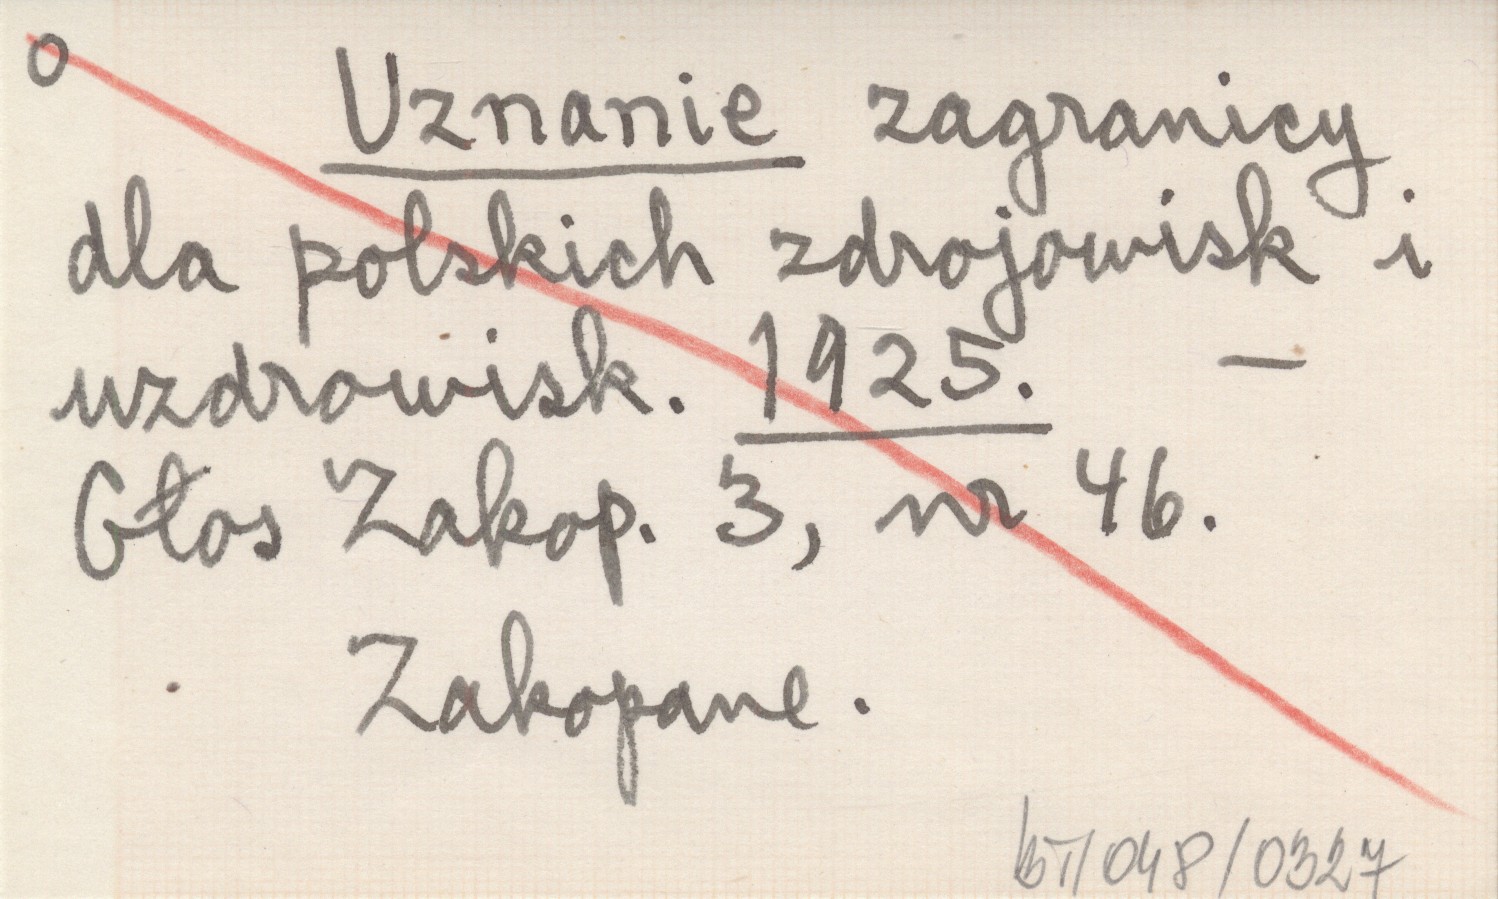 o
Uznanie zagranicy
dla polskich zdrojowisk i
uzdrowisk. 1925. —
Głos Zakop. 3, nr 46.
Zakopane.
bT/048/0327